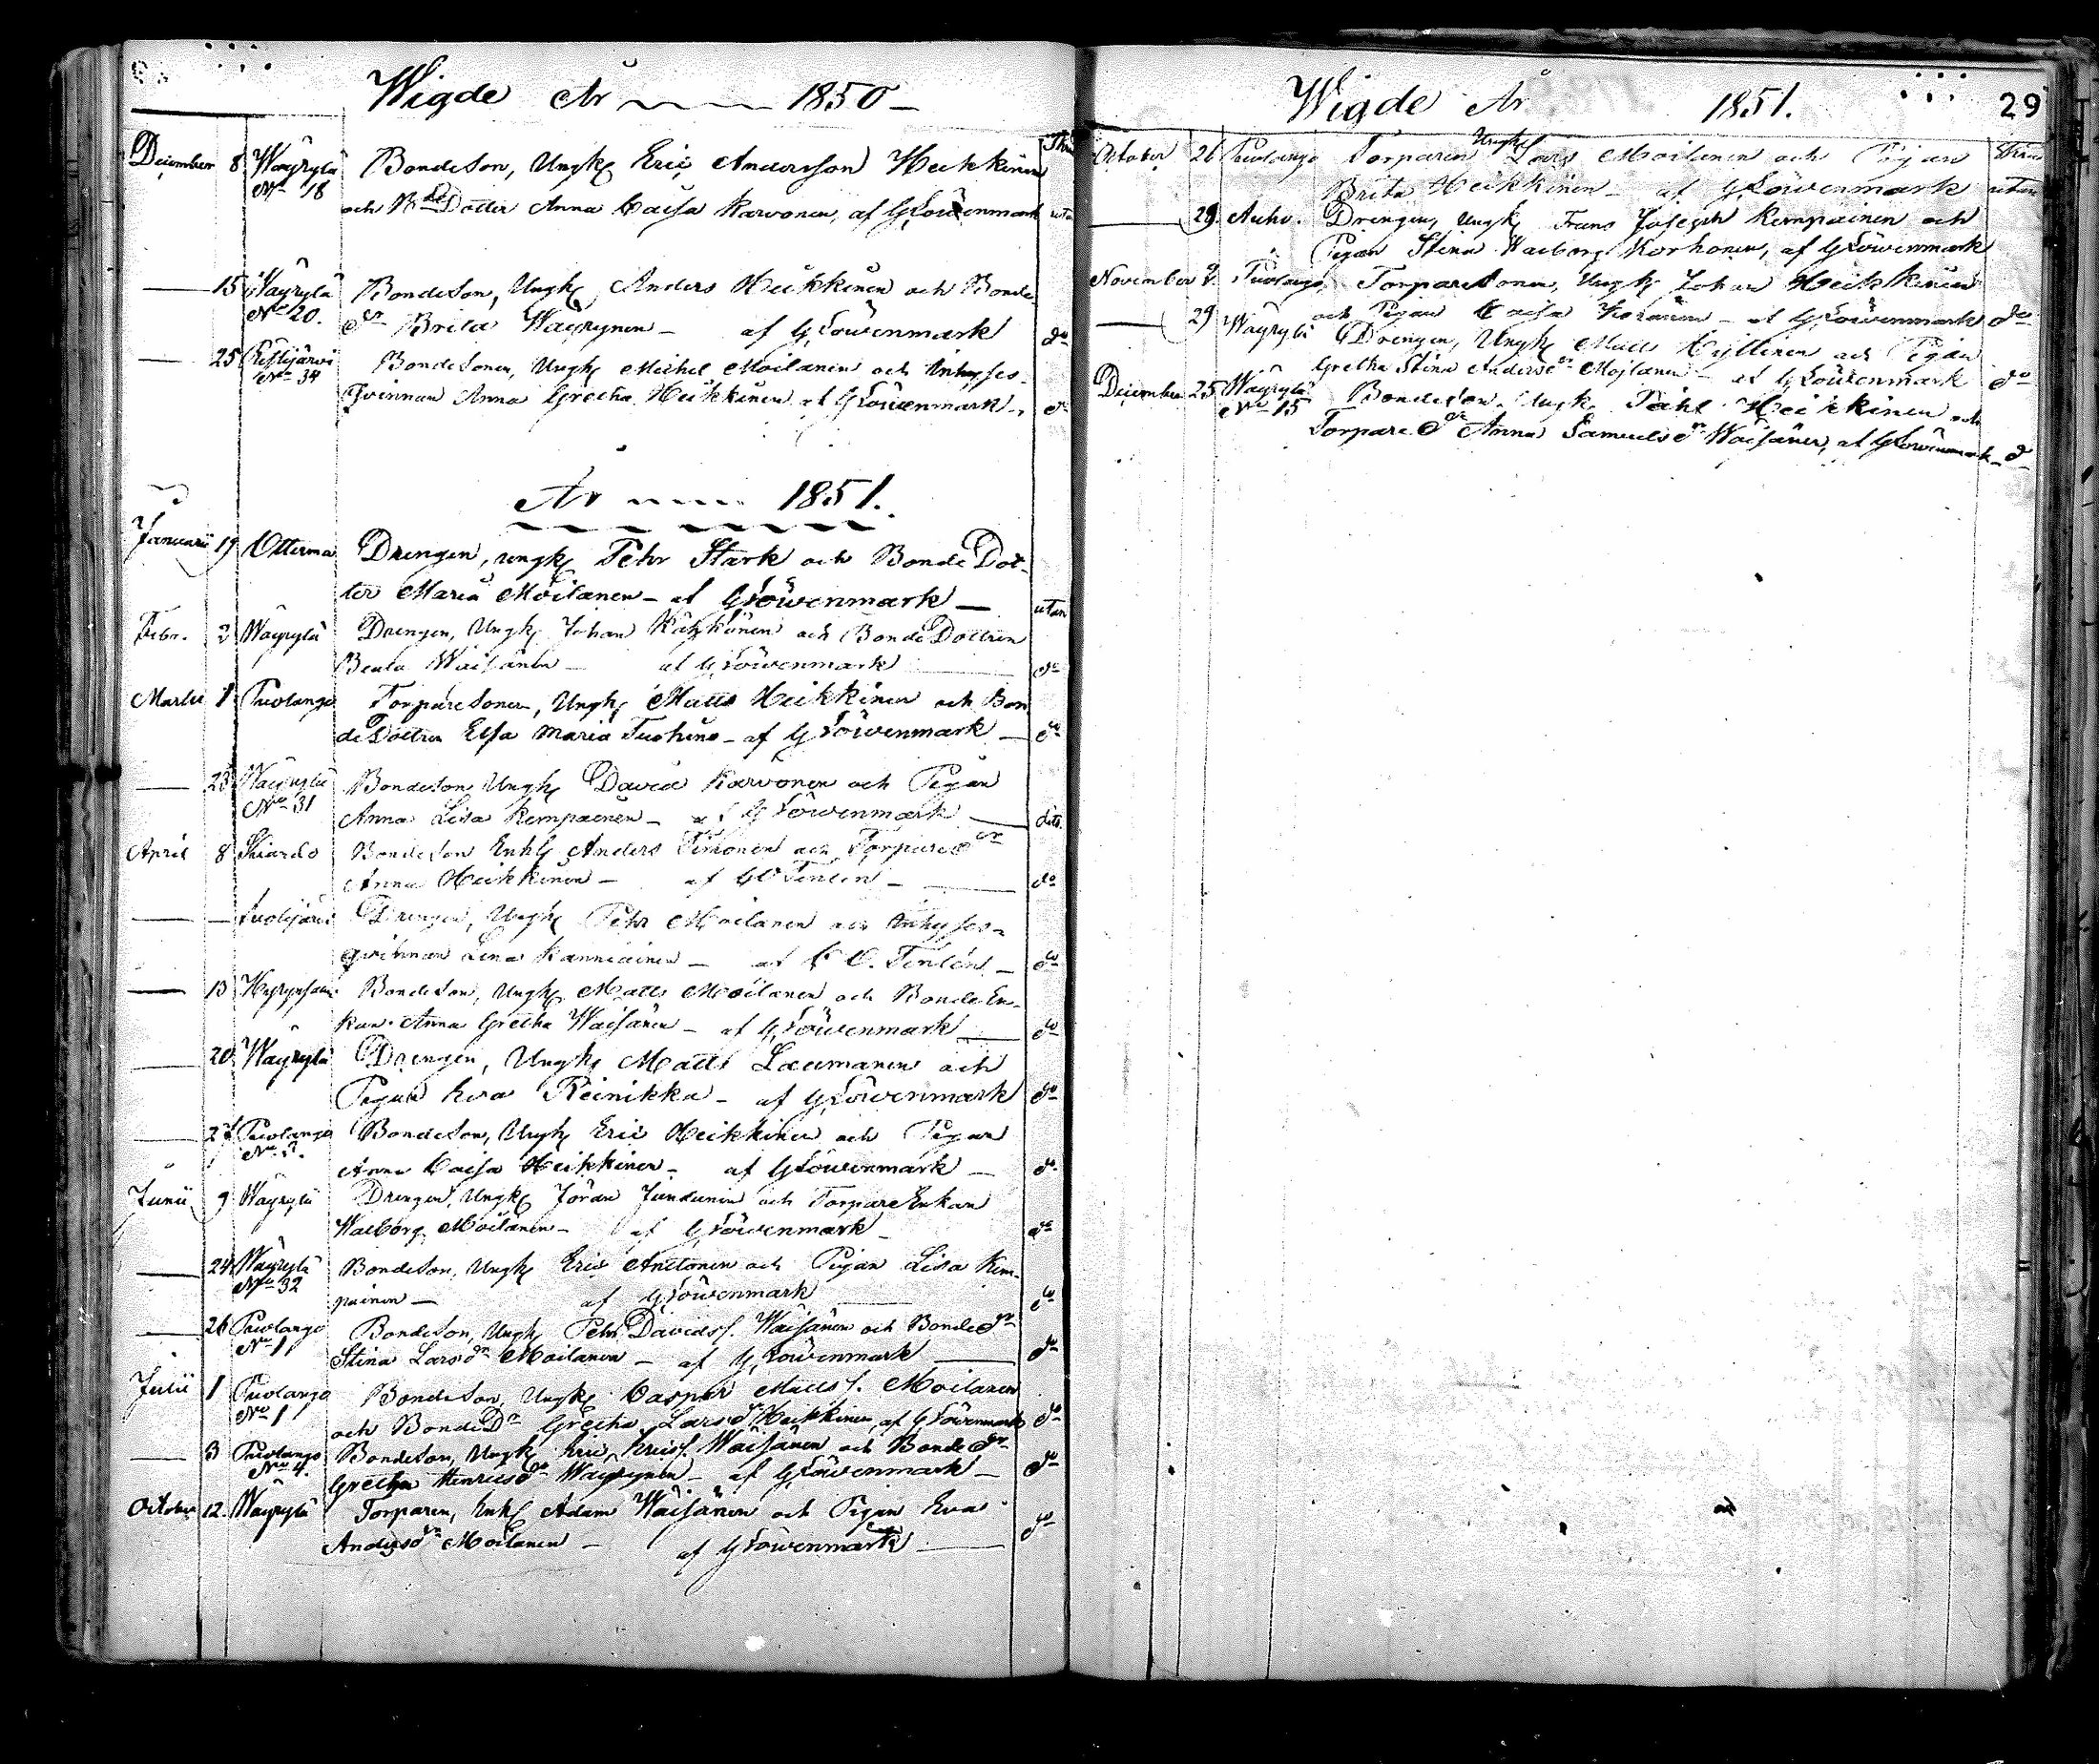 Wigde År 1850
December 8 Wäyrylä Bondeson, Ungk Eric Andersson Heikkinen
No 18 och Bde Dotter Anna Caisa Karvonen, af G Löwenmark utan
15 Wäyrylä Bondeson, Ungk Anders Heikkinen och Bonde
No 20. dr Brita Wäyrynen - af G Löwenmark do
25 Bondesonen, Ungk Michel Moilanen och Inhyses-
No 34 qvinnan Anna Gretha Heikkinen af G Löwenmark do
År 1851.
Januarii 19 Otterma Drengen, ungk Pehr Stark och Bonde Dot-
ter Maria Moilanen - af G Löwenmark - utan
Febr. 2 Wäyrylä Drengen, Ungk Johan och Bonde Dottren
Beata Waisänen - af G Löwenmark do
Martii 1 Puolango Torparesonen, Ungk Matts Heikkinen och Bon
de Dottren Elsa Maria - af G Löwenmark - do
23 Wäyrylä Bondeson, Ungk David Karvonen och Pigan
No 31 Anna Lisa Kempainen - af G Löwenmark dito
April 8 Bondeson Enkl Anders Timonen och Torpare dr
Anna Heikkinen - af do
Drengen, Ungk Pehr Moilanen och Inhyses-
qvinnan Lena - af do
13 Bondeson, Ungk Matts Moilanen och Bonde En-
kan Anna Gretha Waisänen - af G Löwenmark do
20 Wäyrylä Drengen, Ungk Matts och
Pigan Eva Reinikka - af G Löwenmark do
27 Puolango Bondeson, Ungk Eric Heikkinen och Pigan
Anna Caisa Heikkinen - af G Löwenmark - do
Junii 9 Wäyrylä Drengen, Ungk Jöran Jundunen och Torpare Enkan
Walborg Moilanen - af G Löwenmark - do
24 Wäyrylä Bondeson, Ungk Eric Anttonen och Pigan Lisa Kem-
No 32 painen - af G Löwenmark do
26 Puolango Bondeson, Ungk Pehr Davids s. Waisänen och Bonde dr
No 1 Stina Lars dr Moilanen - af G Löwenmark do
Julii 1 Puolango Bondeson, Ungk Casper Matts s. Moilanen
No 1 och Bonde Dr Gretha Lars dr Heikkinen, af G Löwenmark do
3 Puolango Bondeson, Ungk Eric Erics s. Waisänen och Bonde dr
No 4. Gretha Henrics dr Wäyrynen - af G Löwenmark - do
October 12. Wäyrylä Torparen, Enkl Adam Waisänen och Pigan Eva
Anders dr Moilanen - af G Löwenmark do
Wigde År 1851. 29
October 26 Puolango Torparen Ungk Lars Moilanen och Pigan
Brita Heikkinen - af G Löwenmark utan
29 Auho. Drengen, Ungk Frans Joseph Kempainen och
Pigan Stina Walborg Korhonen, af G Löwenmark
November 9. Puolango Torparesonen, Ungk Johan Heikkinen
och Pigan Caisa - af G Löwenmark do
29 Wäyrylä Drengen, Ungk Matts Kyllinen och Pigan
Gretha Stina Anders dr Mojlanen - af G Löwenmark do
December 25 Wäyrylä Bondeson, Ungk Påhl Heikkinen och
No 15 Torpare dr Anna Samuels dr Waisänen, af G Löwenmark - do